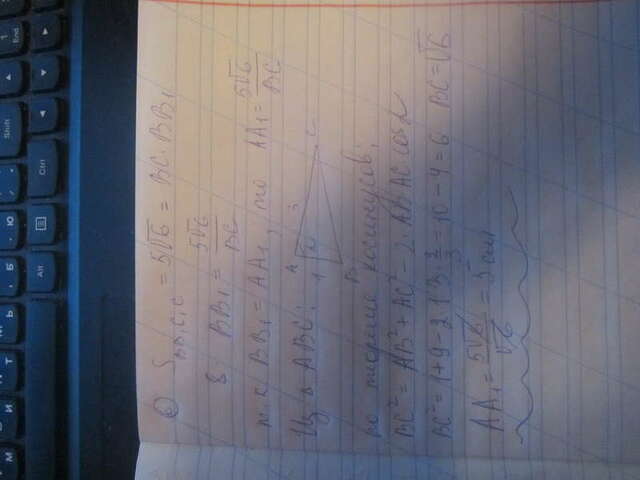 М И Т Ь Б Ю . Shift ▲ 1 End
Alt Ctrl ◄ ▼ ►
6 S BB₁C₁C = 5√6 = BC · BB₁
BB₁ = 5√6/BC
т.к BB₁ = AA₁, то AA₁ = 5√6/BC
Из Δ ABC:
A 3
1 α C
B
по теореме косинусов:
BC² = AB² + AC² - 2 · AB AC cos α
BC² = 1+9-2·1·3·2/3 = 10-4=6 BC=√6
AA₁ = 5√6/√6 = 5 см